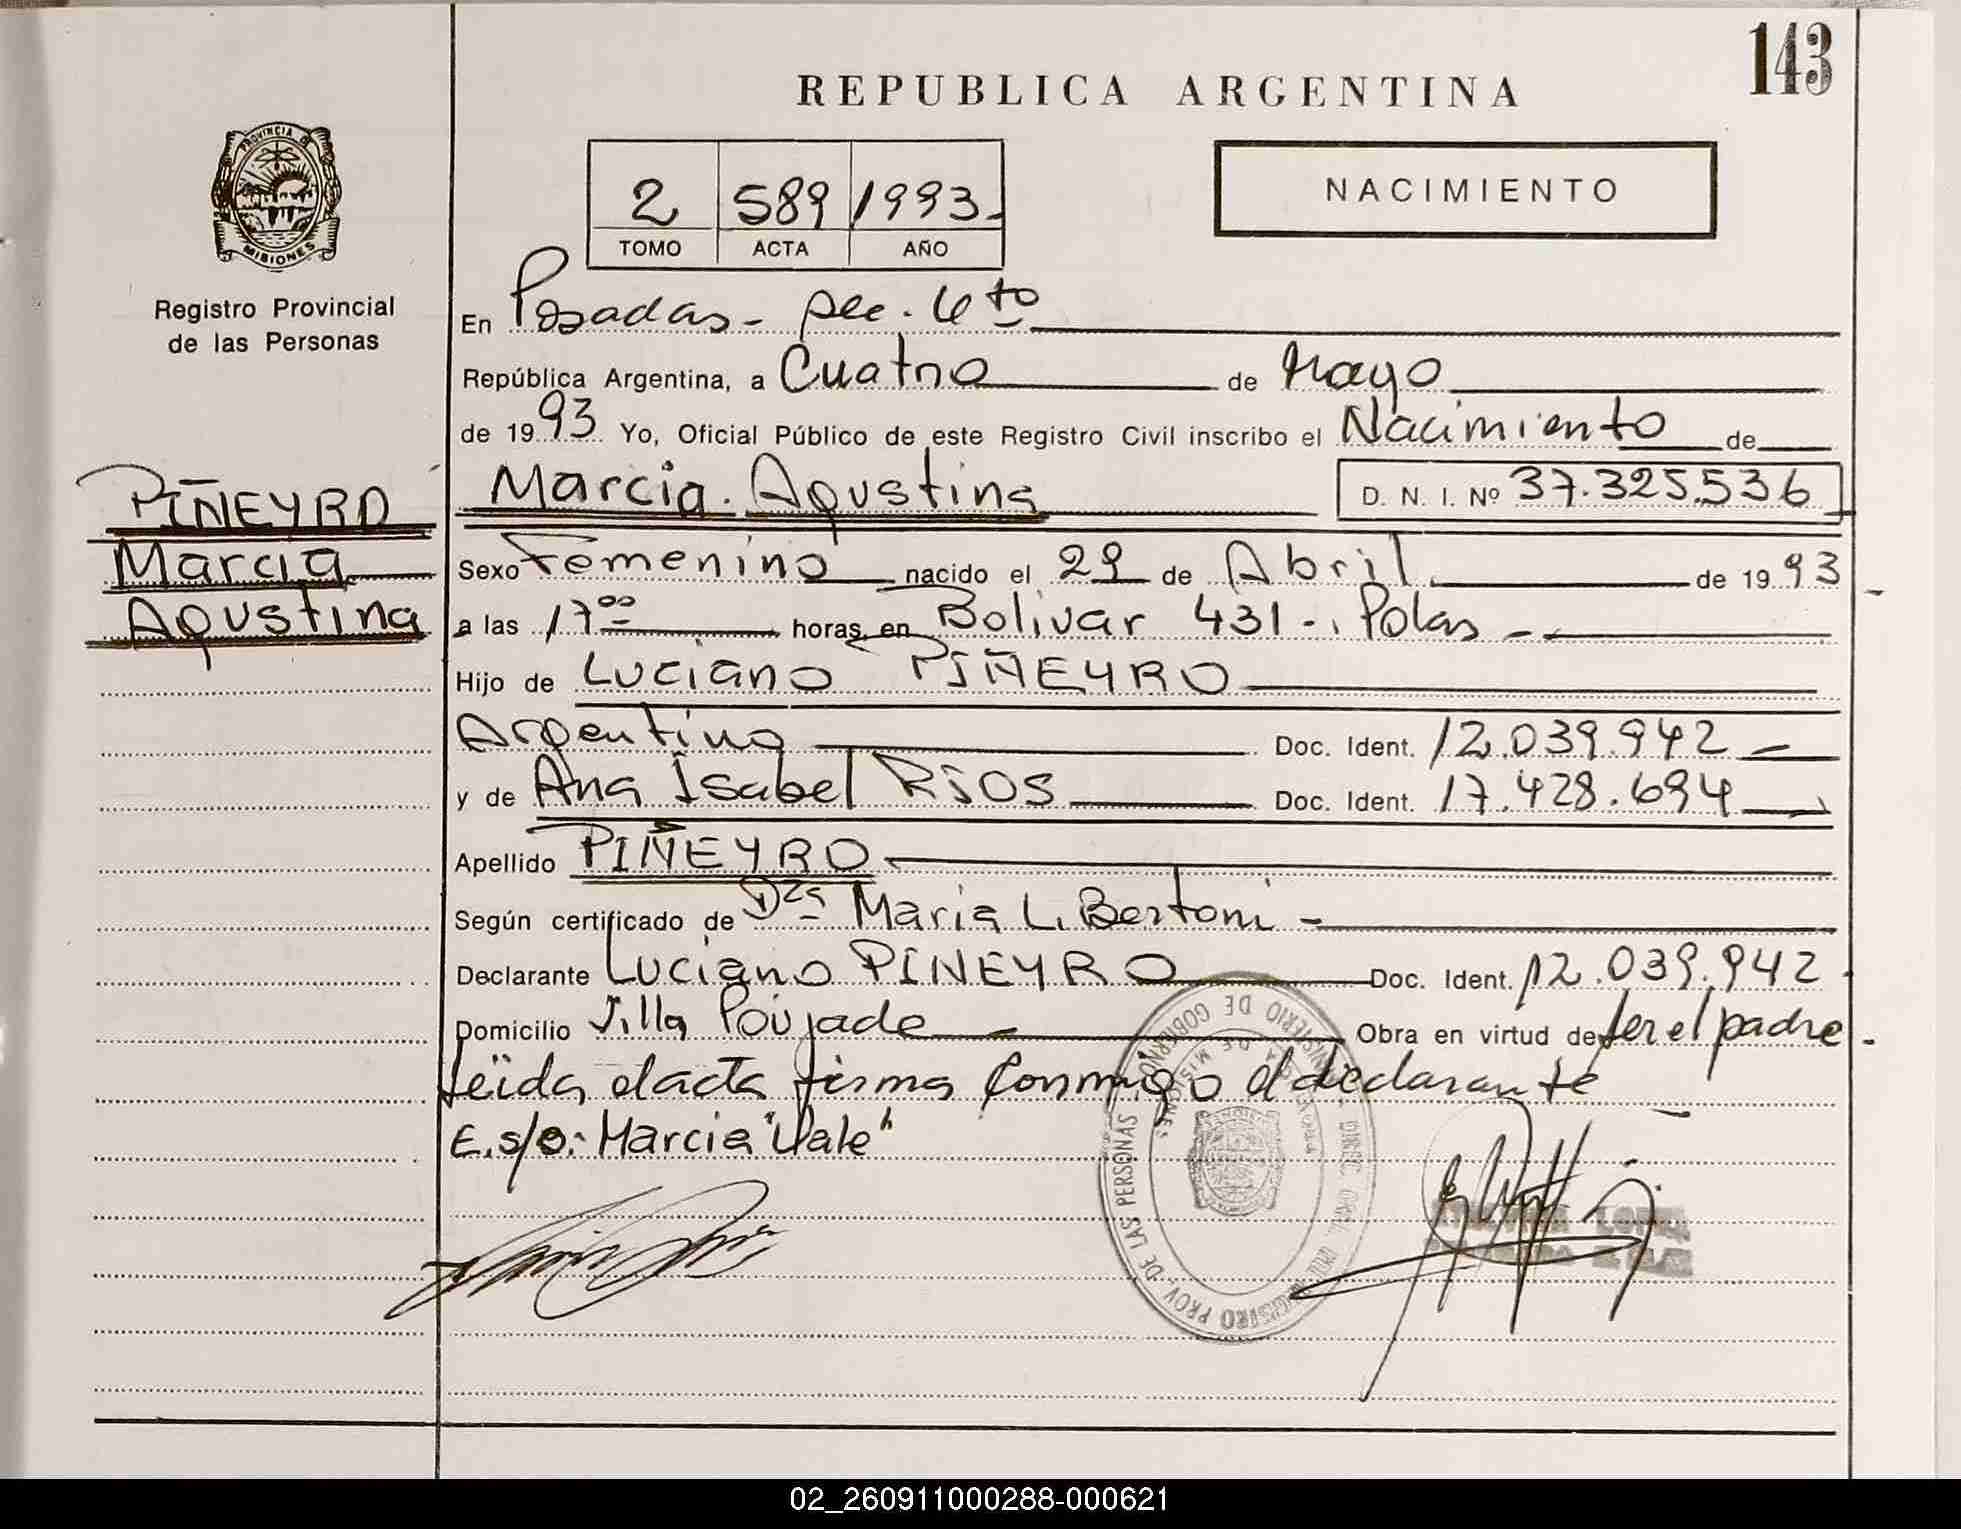 143
REPUBLICA ARGENTINA
PROVINCIA DE
MISIONES
Registro Provincial
de las Personas
2 589 1993
TOMO ACTA AÑO
NACIMIENTO
En Posadas - sec. 4to
República Argentina, a Cuatro de Mayo
de 1993 Yo, Oficial Público de este Registro Civil inscribo el Nacimiento de
PIÑEYRO
Marcia
Agustina
Marcia Agustina D. N. I. Nº 37.325.536
Sexo Femenino nacido el 29 de Abril de 1993
a las 17 00 horas, en Bolivar 431 -, Pdas -
Hijo de Luciano PIÑEYRO
Argentina Doc. Ident. 12.039.942
y de Ana Isabel RIOS Doc. Ident. 17.428.694
Apellido PIÑEYRO
Según certificado de Dra Maria L. Bertoni -
Declarante Luciano PIÑEYRO Doc. Ident. 12.039.942
Domicilio Villa Poujade Obra en virtud de ser el padre.
Leida el acta firma conmigo el declarante
E.s/o: Marcia "Vale"
REGISTRO PROV. DE LAS PERSONAS
02_260911000288-000621